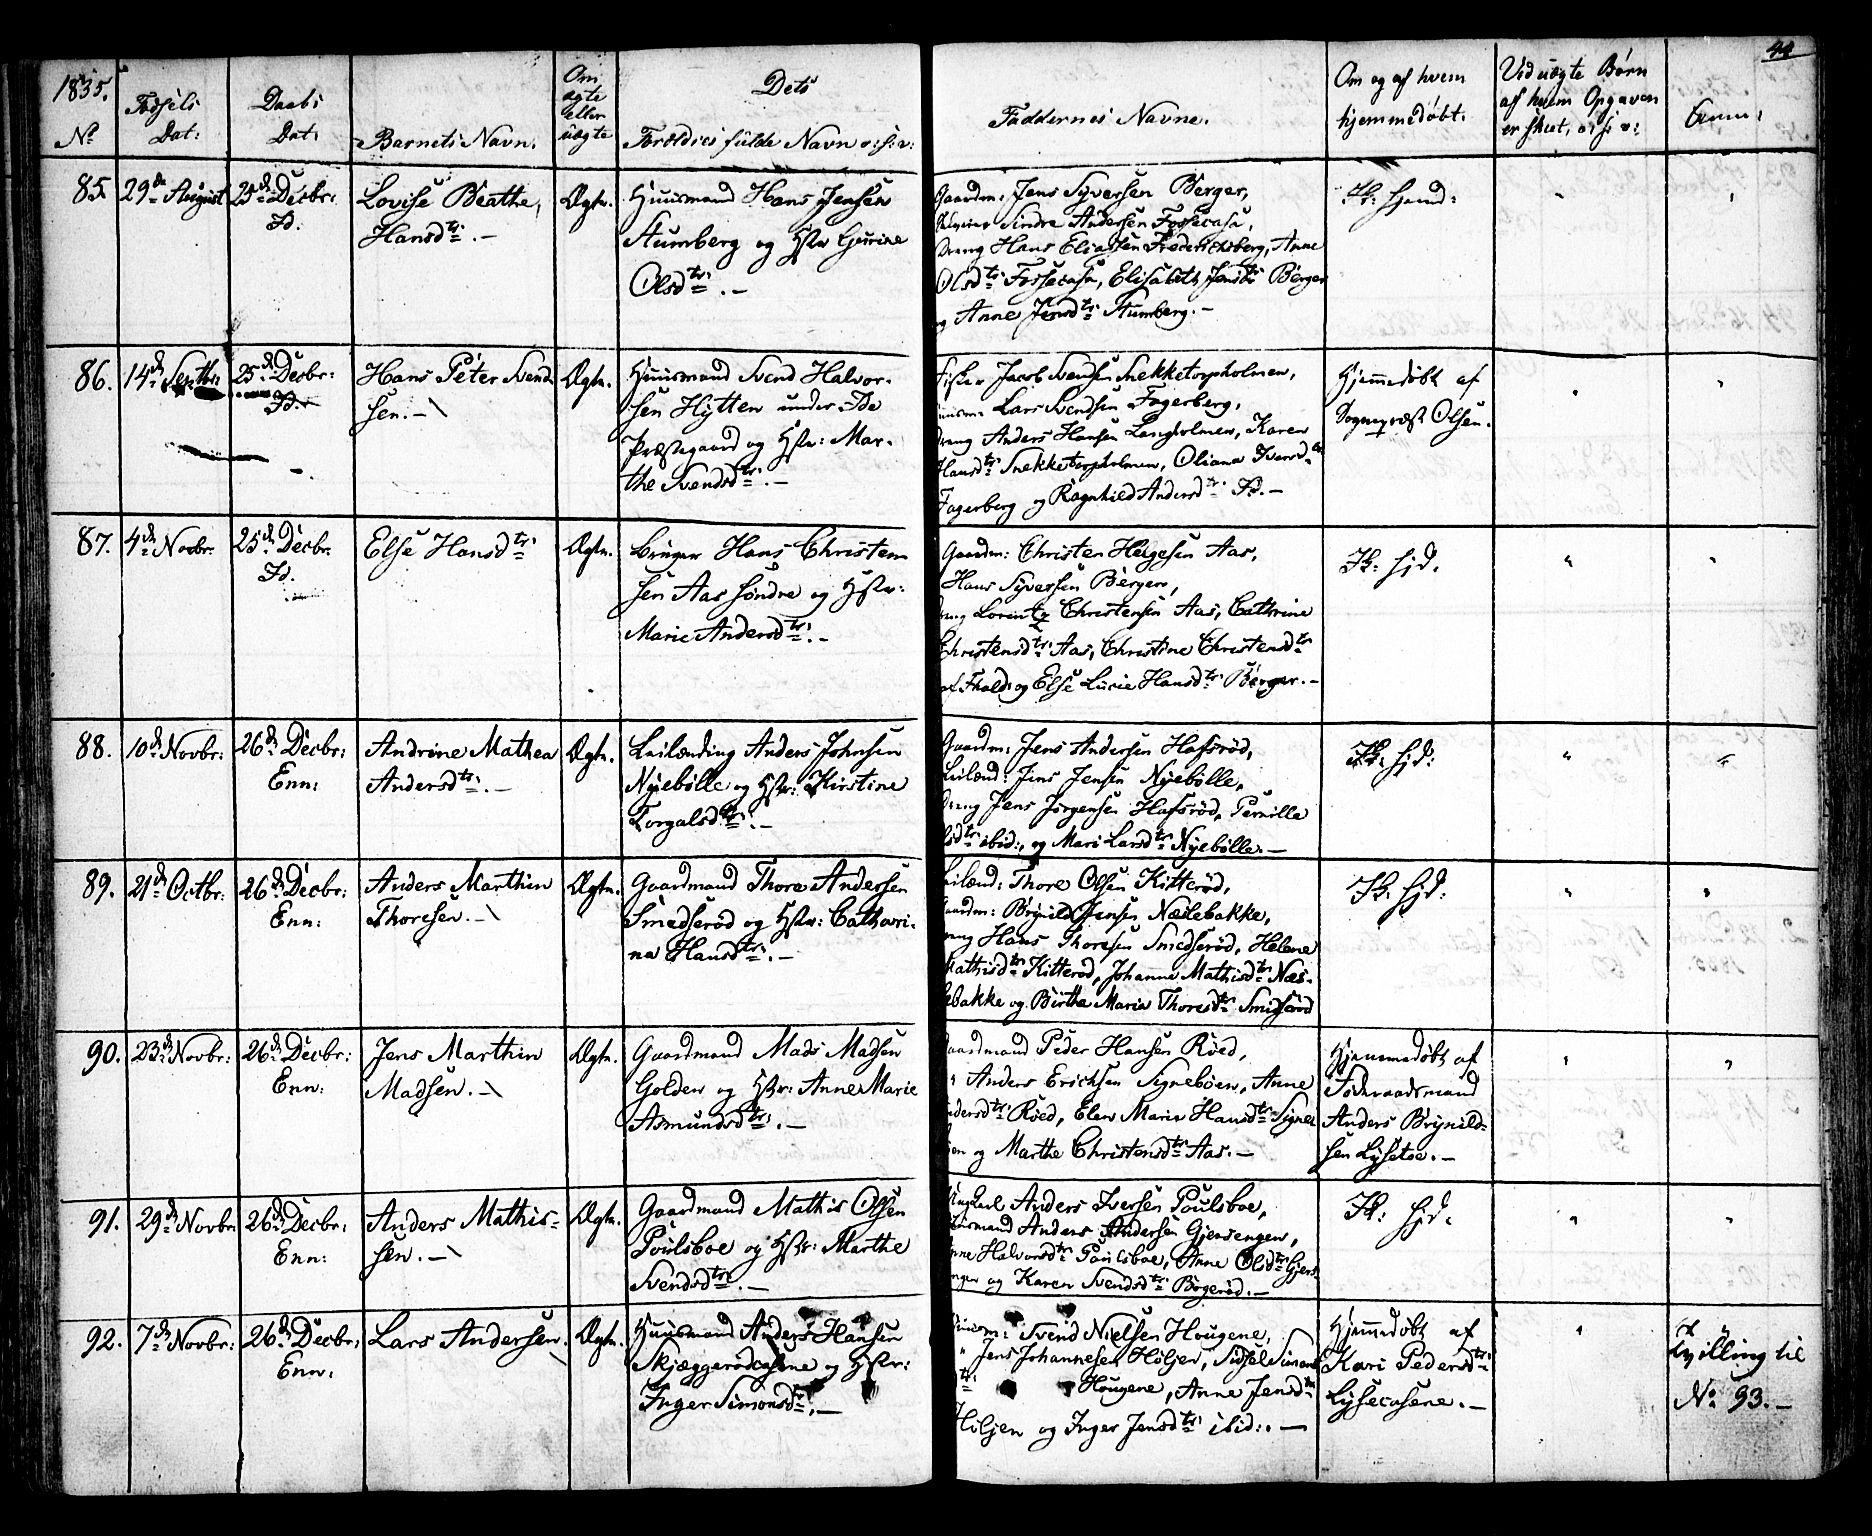 1835.
No
Fødsels
Dat:
Daabs
Dat:
Barnets Navn.
Om
ægte
eller
uægte
Dets
Forældres fulde Navn o: s: v:
Faddernes Navne.
Om og af hvem
hjemmedøbt.
Ved uægte Børn
af hvem Opgaven
er skeet, o: s: v:
Anm:
44
85.
29de August
25de Decbr:
Id.
Lovise Beathe,
Hansdtr. –
Ægte.
Huusmand Hans Jensen
Stumberg og Hstr Gurine
Olsdtr. –
Gaardm: Jens Syversen Berger,
Sindre Andersen Fossecasa,
Dreng Hans Eliassen Frederichsberg, Anne
Olsdtr Fossecasa, Elisabeth Jensdtr Berger
og Anne Jensdtr Stumberg. –
Ik: hjemd:
86.
14de Septbr:
25de Decbr:
Id.
Hans Peter Svend-
sen. –
Ægte.
Huusmand Svend Halvor-
sen Hytten under Ide
Præstegaard og Hstr: Mar-
the Svendsdtr. –
Fisker Jacob Svendsen Snekketorpholmen,
Huusm: Lars Svendsen Fagerberg,
Dreng Anders Hansen Langholmen, Karen
Hansdtr Snekketorpholmen, Oliana Iversdtr
Fagerberg og Ragnhild Andersdtr Id. –
Hjemmedøbt af
Sognepræst Olsen.
87.
4de Novbr:
25de Decbr.
Id.
Else Hansdtr
Ægte.
Bruger Hans Christen-
sen Aas søndre og Hstr:
Marie Andersdtr. –
Gaardm: Christen Helgesen Aas,
Hans Syversen Bergen,
Dreng Lorentz Christensen Aas, Cathrine
Christensdtr Aas, Christine Christensdtr
af Fhald: og Else Lucie Hansdtr Berger. –
Ik: hjd.
88.
10de Novbr:
26de Decbr:
Enn:
Andrine Mathea
Andersdtr. –
Ægte.
Leilænding Anders Johnsen
Nyebølle og Hstr: Kirstine
Torgalsdtr. –
Gaardm: Jens Andersen Hafsrød,
Leilænd: Jens Jensen Nyebølle,
Dreng Jens Jørgensen Hafsrød, Pernille
Olsdtr ibid:, og Mari Larsdtr Nyebølle. –
Ik: hjd:
89.
21de Octbr:
26de Decbr:
Enn:
Anders Marthin
Thoresen. –
Ægte.
Gaardmand Thore Andersen
Smedsrød og Hstr: Cathari-
na Hansdtr. –
Leilænd: Thore Olsen Kitterød,
Gaardm: Brynild Jensen Næsebakke,
Dreng Hans Thoresen Smedserød, Helene
Mathisdtr Kitterød, Johanne Mathisdtr Næs-
sebakke og Birthe Maria Thoresdtr Smedserød
Ik. hjd.
90.
23de Novbr:
26de Decbr:
Enn:
Jens Marthin
Madsen. –
Ægte.
Gaardmand Mads Madsen
Golden og Hstr: Anne Marie
Asmundsdtr. –
Gaardmand Peder Hansen Røed,
" Anders Erichsen Signebøen, Anne
Andersdtr Røed, Elen Maria Hansdtr Signe-
bøen og Marthe Christensdtr Aas. –
Hjemmedøbt af
Føderaadsmand
Anders Brynild-
sen Lysetøe. –
91.
29de Novbr
26de Decbr:
Enn:
Anders Mathis-
sen. –
Ægte.
Gaardmand Mathis Olsen
Poulsboe og Hstr: Marthe
Svendsdtr. –
Ungkarl Anders Iversen Poulsboe,
Huusmand Anders Andersen Gjersengen,
Anne Halvorsdtr Poulsboe, Anne Olsdtr Gjers-
engen og Karen Svendsdtr Børgerød. –
Ik: hjd.
92.
7de Novbr:
26de Decbr:
Enn:
Lars Andersen.
Ægte.
Huusmand Anders Hansen
Skjæggerødcasene og Hstr:
Inger Simonsdtr. –
Huusm: Svend Nielsen Hougene,
" Jens Johannesen Høljen, Sidsel Simons-
dtr Hougene, Anne Jensdtr
Høljen og Inger Jensdtr ibid:. –
Hjemmedøbt af
Kari Pedersdtr
Lysecasene. –
Tvilling til
No 93. –